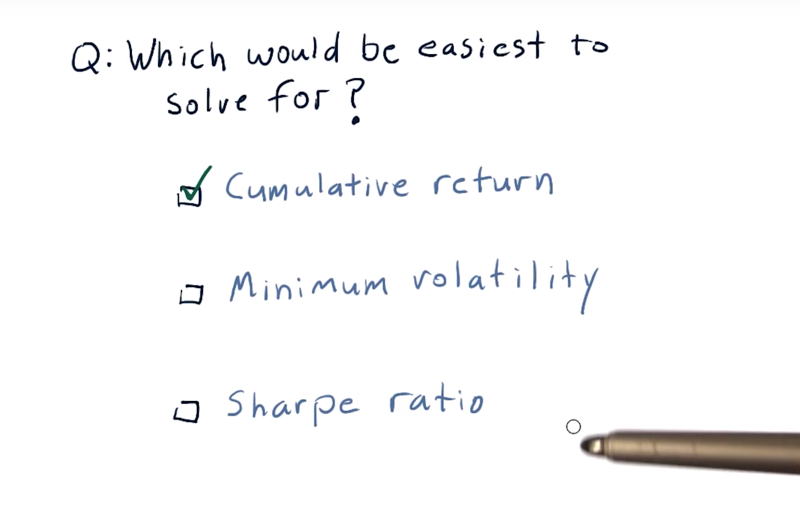 Q: Which would be easiest to
solve for?
Cumulative return
Minimum volatility
Sharpe ratio